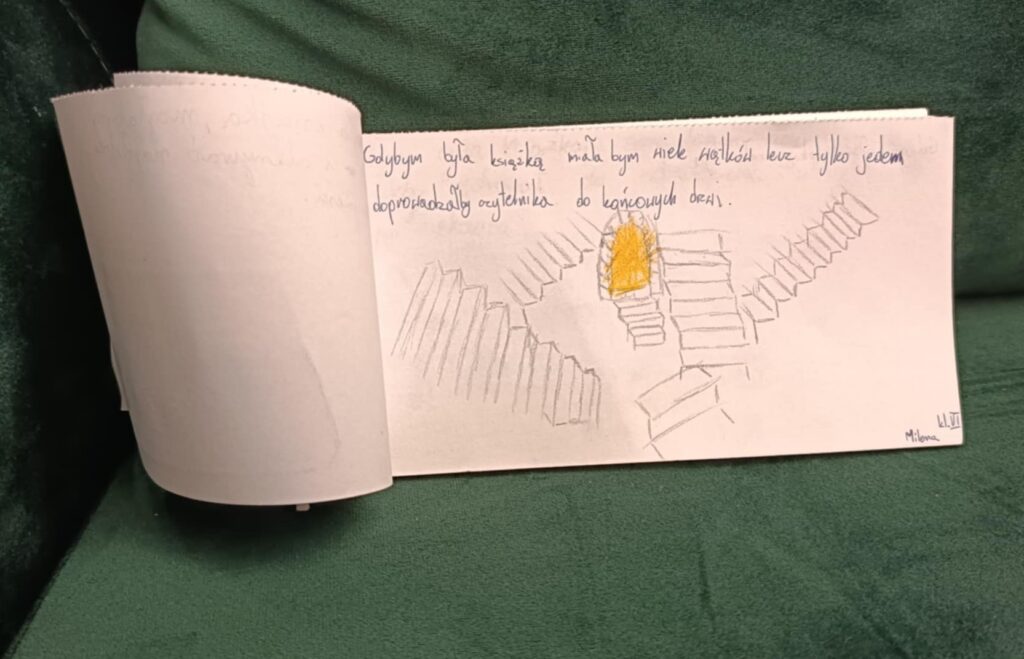 Gdybym była książką mała bym wiele wątków lecz tylko jedem
doprowadzałby czytelnika do końcowych drzwi.
kl. VI
Milena